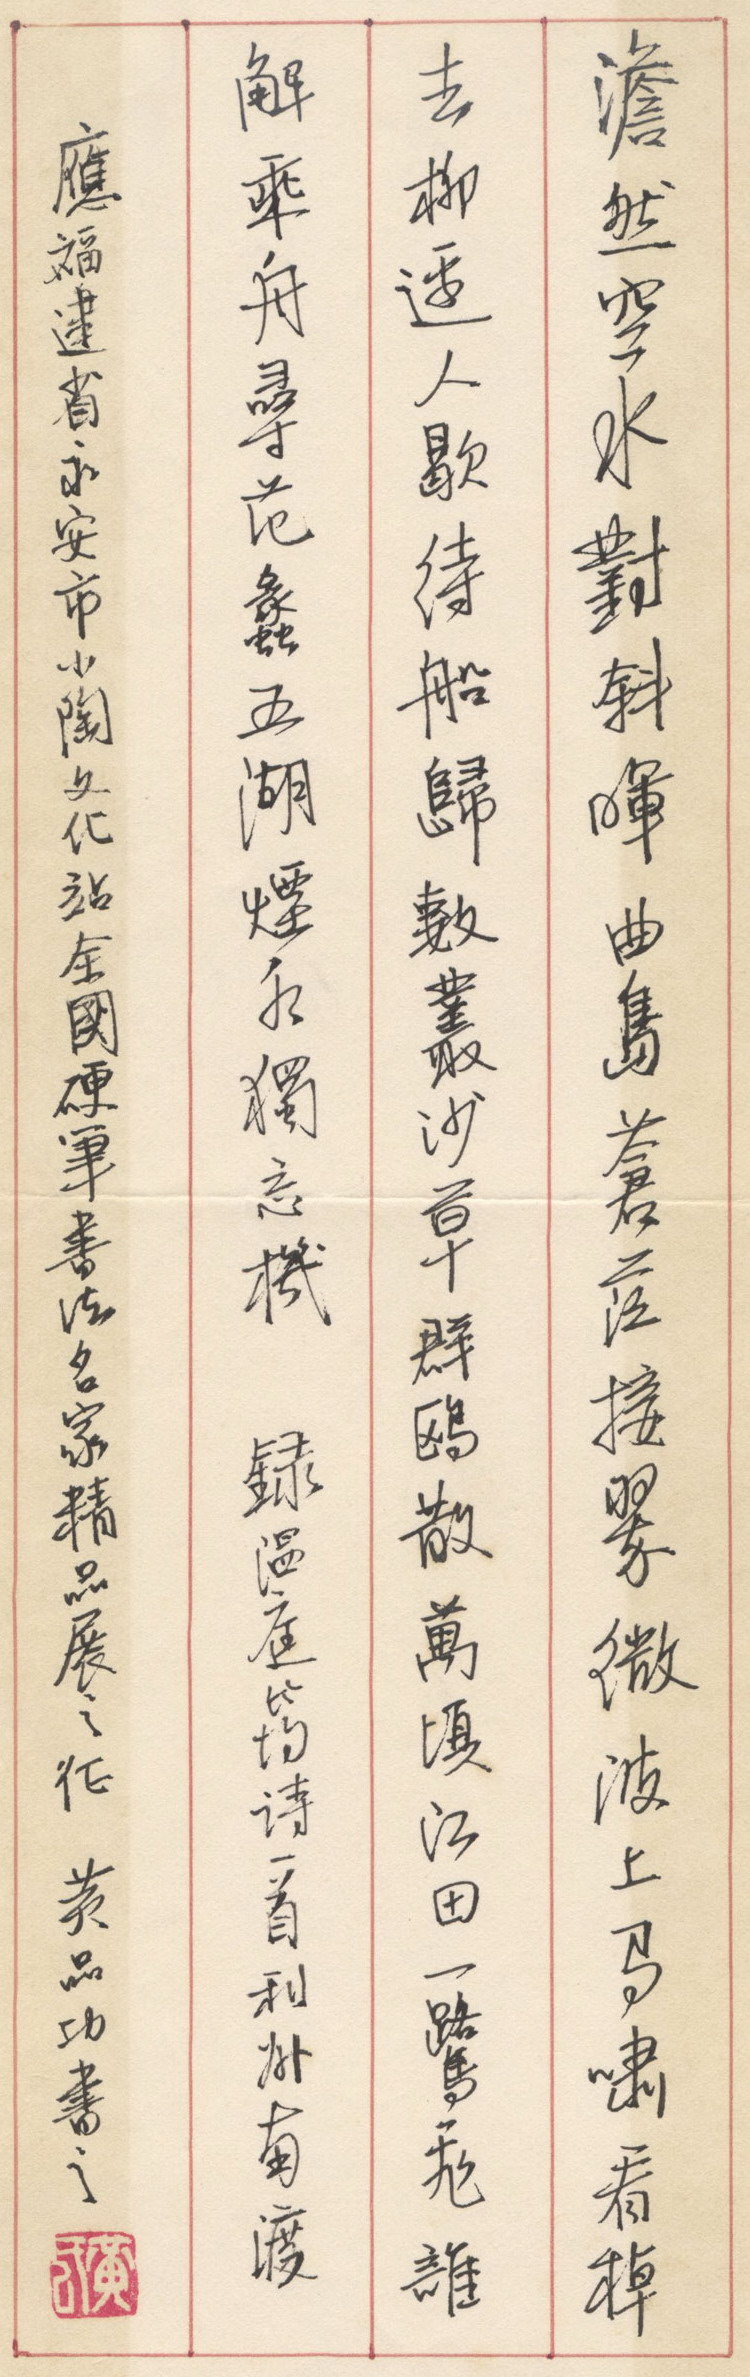 澹然空水對斜暉曲島蒼茫接翠微波上馬嘶看棹
去柳邊人歇待船歸數叢沙草群鷗散萬頃江田一鷺飛誰
解乘舟尋范蠡五湖煙水獨忘機 錄溫庭筠詩一首利州南渡
應福建省永安市小陶文化站全國硬筆書法名家精品展之征 黃品功書之